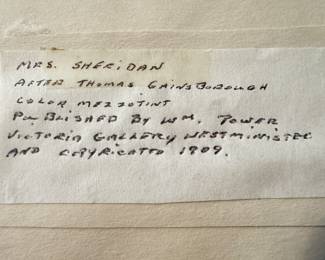 MRS. SHERIDAN
AFTER THOMAS GAINSBOROUGH
COLOR MEZZOTINT
PUBLISHED BY WM. POWER
VICTORIA GALLERY WESTMINISTEC
AND COPYRICATTD 1909.